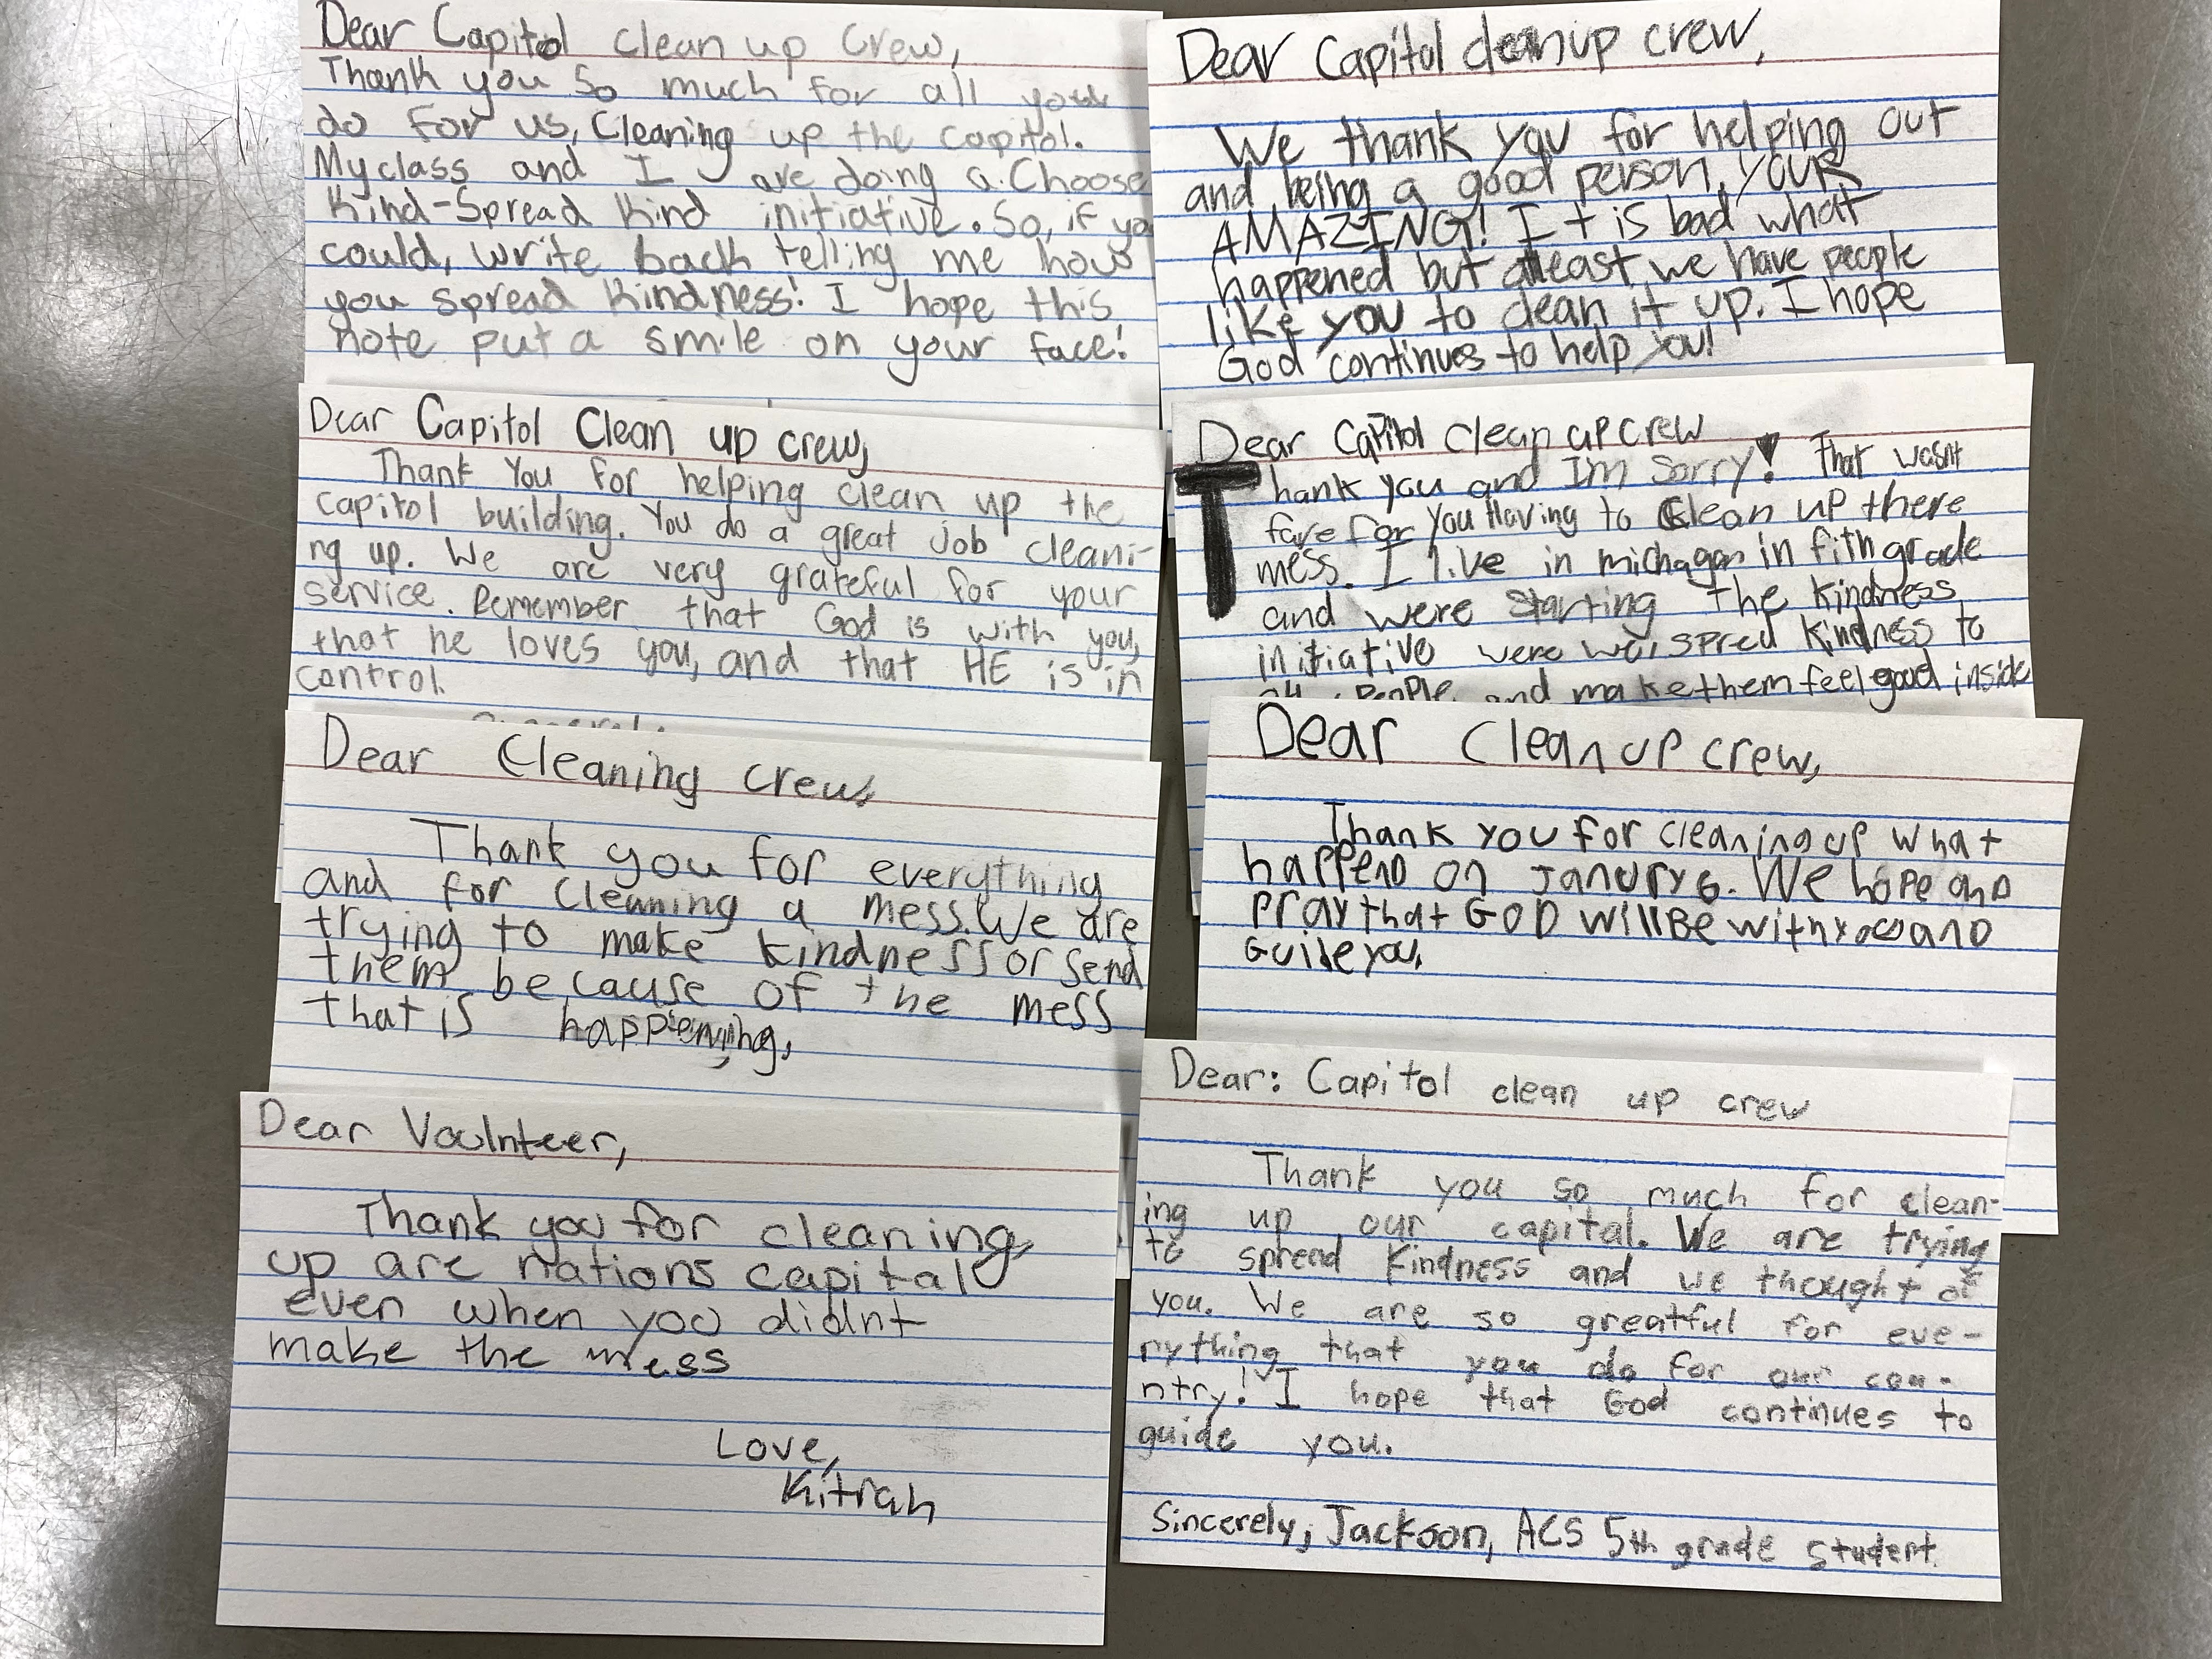 Dear Capitol clean up Crew,
Thank you so much for all you
do for us, Cleaning up the Capitol.
My class and I are doing a Choose
Kind-Spread Kind initiative. So, if yo
could, write back telling me how
you spread kindness! I hope this
note put a smile on your face!
Dear Capitol Clean up crew,
Thank You for helping clean up the
capitol building. You do a great job cleani-
ng up. We are very grateful for your
service. Remember that God is with you,
that he loves you, and that HE is in
control.
Dear Cleaning crew,
Thank you for everything
and for cleaning a mess. We are
trying to make kindness or send
them because of the mess
that is happening,
Dear Voulnteer,
Thank you for cleaning
up are nations capital
even when you didnt
make the mess
Love,
Kitrah
Dear Capitol cleanup crew,
We thank you for helping out
and being a good person, YOUR
AMAZING! It is bad what
happened but atleast we have people
like you to clean it up. I hope
God continues to help you!
Dear Capitol clean up crew
Thank you and Im sorry! That wasnt
fare for you Having to Clean up there
mess. I live in michagan in fith grade
and were starting the kindness
initiative were we spred kindness to
people and make them feel good inside
Dear Clean up crew,
Thank you for cleaning up what
happend on Janury 6. We hope and
pray that GOD will Be with you and
Guide you,
Dear: Capitol clean up crew
Thank you so much for clean-
ing up our capital. We are trying
to spread kindness and we thought of
you. We are so greatful for eve-
rything that you do for our cou-
ntry! I hope that God continues to
guide you.
Sincerely, Jackson, ACS 5th grade student